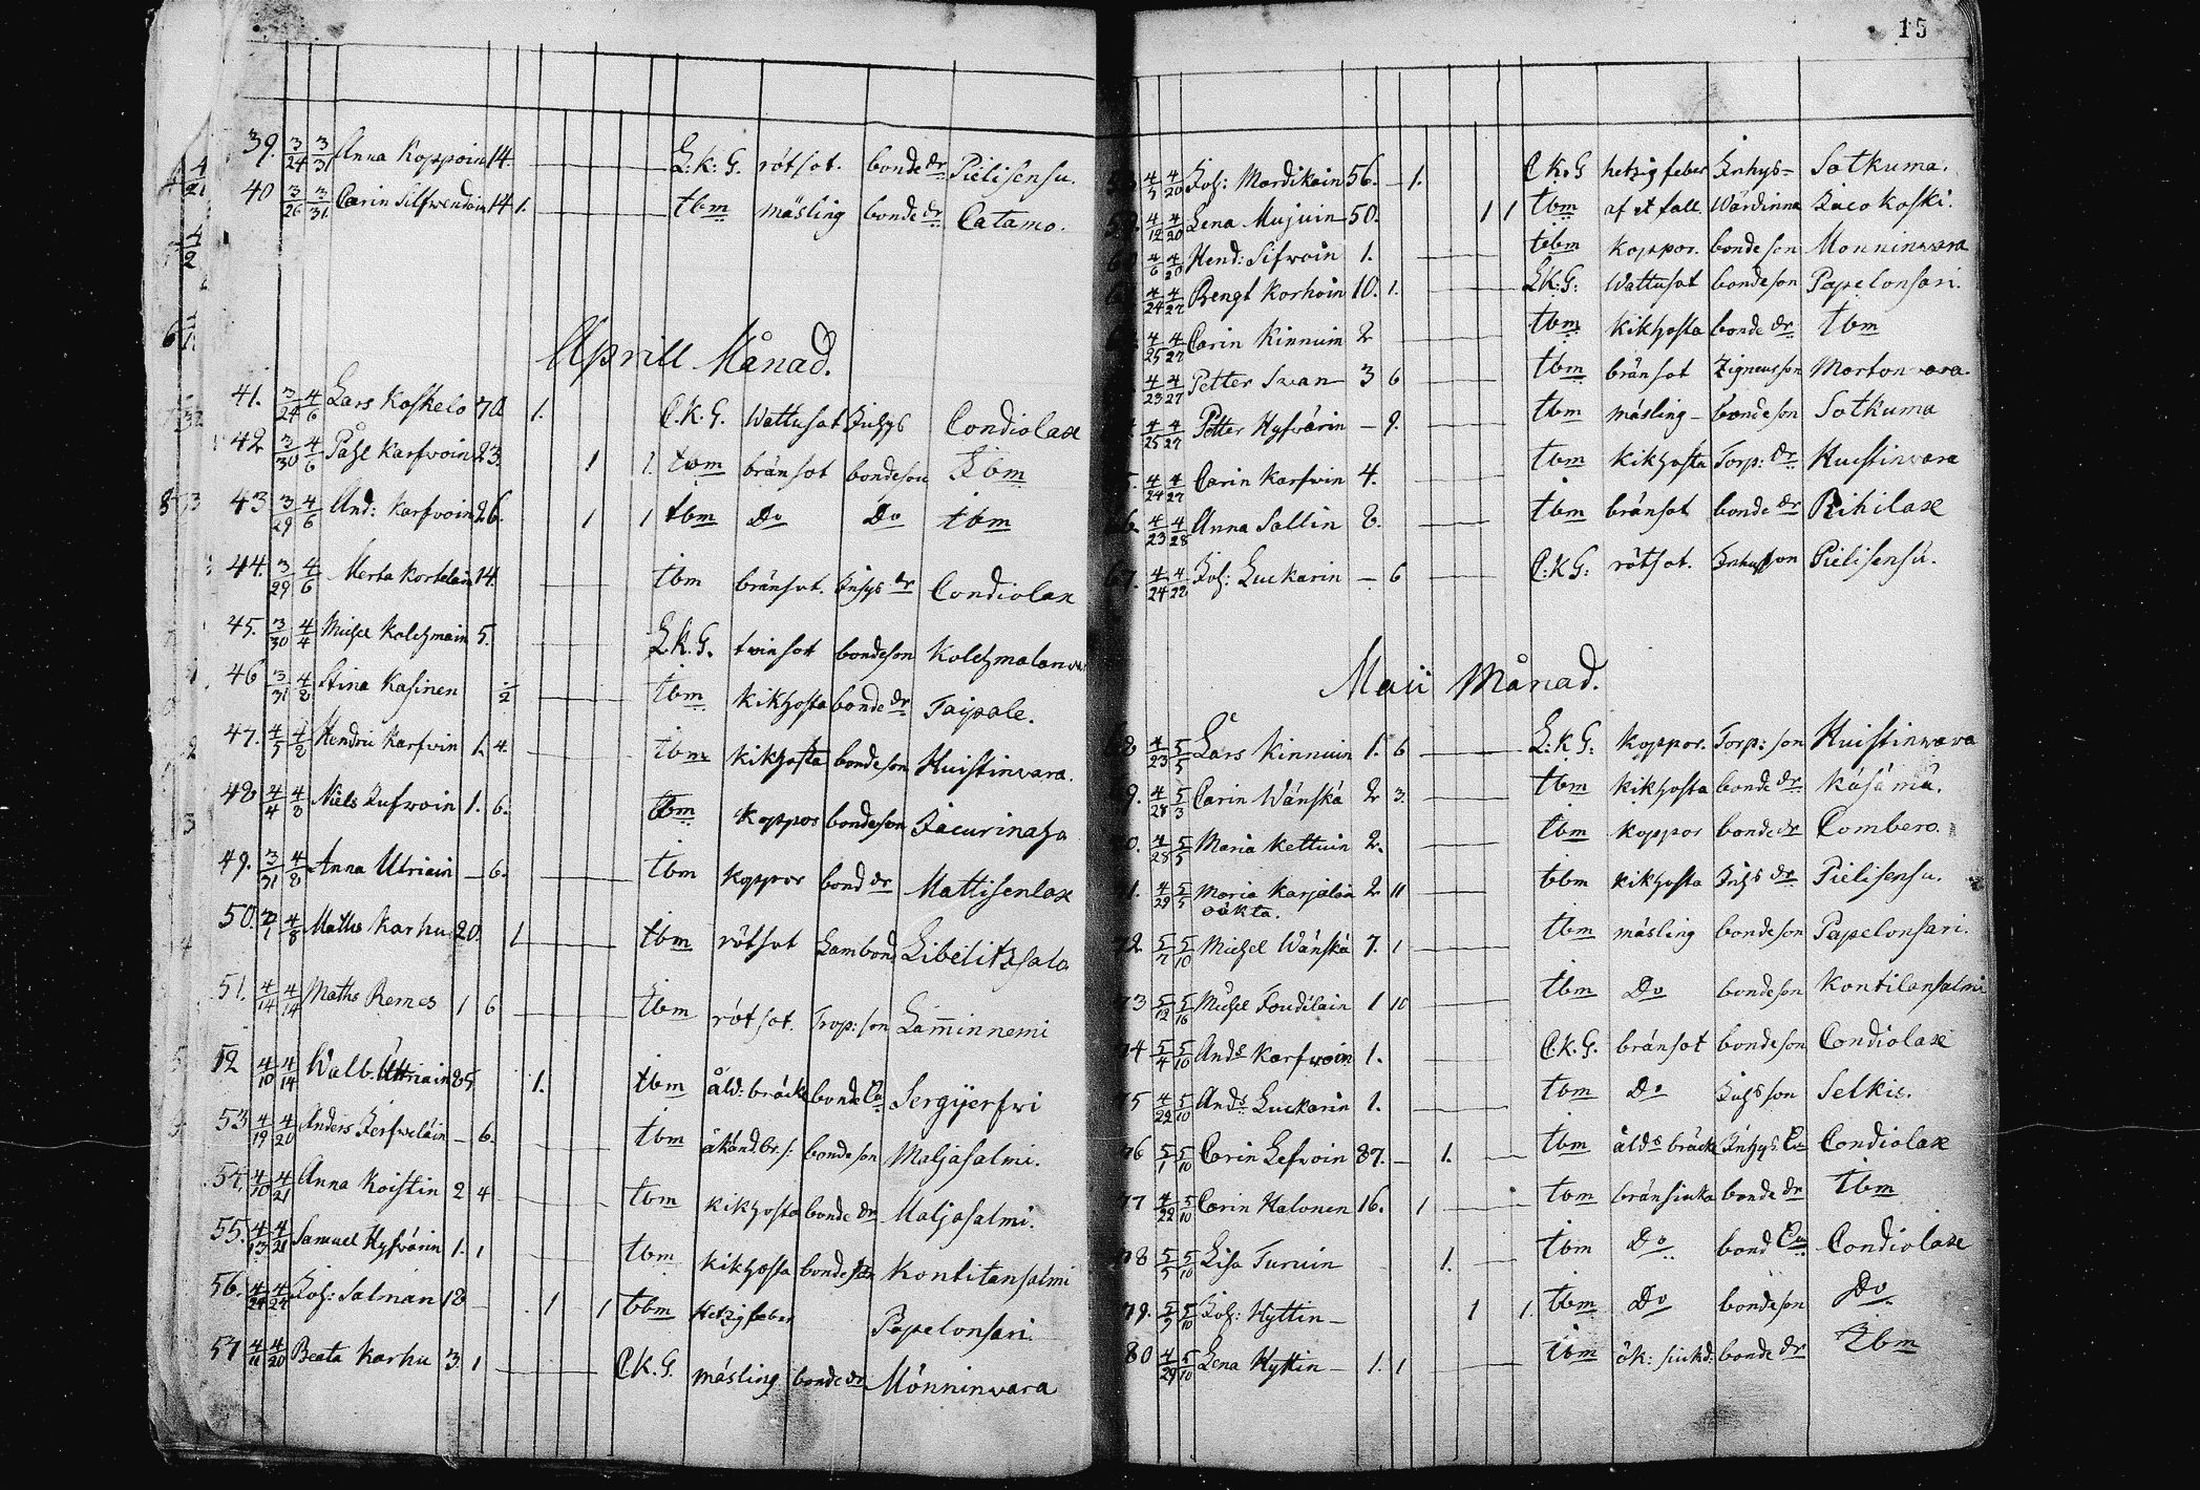 39. 3/24 3/31 Anna Koppoin 14. L:k:G. rötsot. bonde dr Pielisensu.
40 3/26 3/31 Carin Silfwendoin 14 1. tbm mäsling bonde dr Catamo.
Aprill Månad.
41. 3/24 4/6 Lars Koskelo 70 1. C.k.G. Wattusot Inhys Condiolax
42 3/30 4/6 Påhl Karfwoin 23. 1 1. tbm bränsot bondeson Ibm
43 3/29 4/6 And: Karfwoin 26. 1 1 tbm Do Do tbm
44. 3/29 4/6 Merta Kortelain 14. tbm bränsot. Inhys dr Condiolax
45. 3/30 4/4 Michel Kolehmain 5. L.k.G. twinsot bondeson Kolehmalanva
46 3/31 4/8 Stina Kasinen 1/2 tbm Kikhosta bonde dr Taipale.
47. 4/5 4/8 Hendric Karfvin 1. 4. tbm Kikhosta bondeson Huistinvara.
48 4/4 4/8 Niels Iufwoin 1. 6. tbm Koppor bondeson
49. 3/31 4/8 Anna Utriain – 6. tbm Koppor bond dr Mattisenlax
50. 4/8 Maths Karhu 20. 1 tbm rötsot Lambond Libelitzsalo
51. 4/14 4/14 Maths Remes 1 6 tbm rötsot. Trop: son Lam̅innemi
52 4/10 4/14 Walb. Uttriain 85. 1. tbm åld: bräck bonde Ea Sergijerfwi
53 4/19 4/20 Anders Ierfweläin – 6. tbm åkänd. br. s: bondeson Maljasalmi.
54. 4/10 4/21 Anna Koistin 2 4 tbm Kikhosta bonde dr Maljasalmi.
55. 4/13 4/21 Samuel Hyfvärin 1. 1 tbm Kikhosta bondeson Kontitansalmi
56. 4/24 4/24 Joh: Salman 18 – 1 1 tbm Hetzig feber Papelonsari.
57 4/11 4/20 Beata Karhu 3. 1 C.k.G. mäsling bonde dr Mönninvara
15
4/5 4/20 Joh: Mordikain 56. – 1. C.k.G hetzig feber Inhys– Sotkuma.
59. 4/12 4/20 Lena Mujuin 50. 1 1 tbm af et fall. Wärdinna Iuco Koski.
4/6 4/20 Hend: Sifwoin 1. tbm Koppor. bondeson Monninvara
4/24 4/27 Bengt Korhoin 10. 1. L.k:G: Wattusot bondeson Papelonsari.
4/25 4/27 Carin Kinnuin 2 tbm Kikhosta bonde dr tbm
4/23 4/27 Petter Svan 3 6 tbm bränsot Zigneusson Mortonvara.
4/25 4/27 Petter Hyfvärin – 9. tbm mäsling – bondeson Sotkuma
4/24 4/27 Carin Karfvin 4. tbm Kikhosta Torp: dr Huistinvara
4/23 4/28 Anna Sallin 2. tbm bränsot bonde dr Rihilax
67. 4/24 4/28 Joh: Luckarin – 6 C:k.G: rötsot. Inhysson Pielisensu.
Maii Månad.
4/23 5/5 Lars Kinnuin 1. 6 L:k.G: Koppor. Torp: son Huistinvara
9. 4/28 5/3 Carin Wänskä 2 3. tbm Kikhosta bonde dr Käsämä.
0. 4/28 5/5 Maria Kettuin 2. tbm Koppor bonde dr Combero.
1. 4/29 5/5 Maria Karjalain 2 11 tbm Kikhosta Inhs dr Pielisensu.
oäkta.
72 5/7 5/10 Michel Wänskä 7. 1 tbm mäsling bondeson Papelonsari.
73 5/12 5/16 Michel Toudilain 1 10 tbm Do bondeson Kontilansalmi
74 5/4 5/10 Ands Karfwoin 1. C.k.G. bränsot bondeson Condiolax
75 4/22 5/10 Ands Luckarin 1. tbm Do Inhs son Selkis.
76 5/1 5/10 Carin Lefwoin 87. – 1. tbm ålds bräck Inhys Ea Condiolax
77 4/22 5/10 Carin Halonen 16. 1 tbm bränsiuka bonde dr tbm
78 5/5 5/10 Lisa Turuin 1. tbm Do bond Ea Condiolax
79. 5/3 5/10 Joh: Hyttin – 1 1. tbm Do bondeson Do
80 4/29 5/10 Lena Hyttin – 1. 1 tbm ök: siukd: bonde dr Ibm